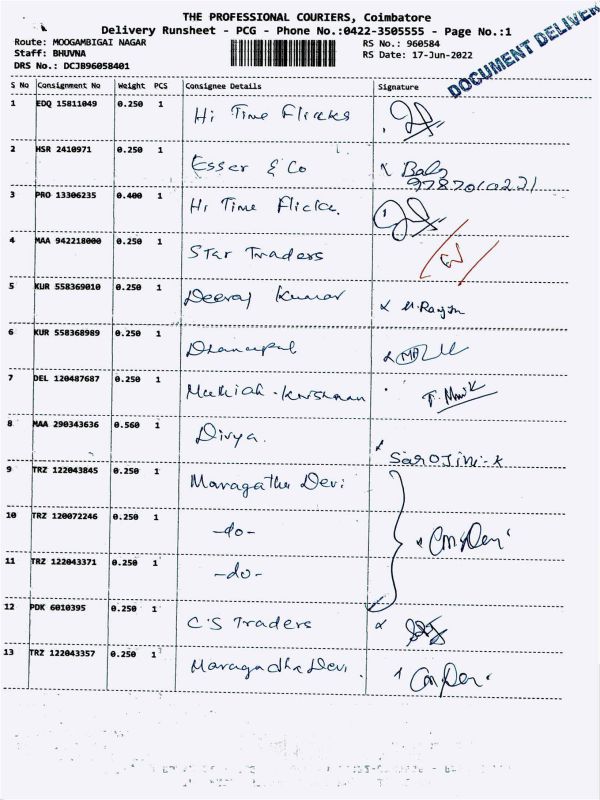 THE PROFESSIONAL COURIERS, Coimbatore
Delivery Runsheet - PCG - Phone No.:0422-3505555 - Page No.:1
Route: MOOGAMBIGAI NAGAR RS No.: 960584
Staff: BHUVNA RS Date: 17-Jun-2022
DRS No.: DCJB96058401
DOCUMENT DELIVER
S No Consignment No Weight PCS Consignee Details Signature
1 EDQ 15811049 0.250 1 Hi Time Flicks
2 HSR 2410971 0.250 1 Esser & Co
3 PRO 13306235 0.400 1 Hi Time
4 MAA 942218000 0.250 1 Star Traders
5 KUR 558369010 0.250 1 Deeraj Kumar
6 KUR 558368989 0.250 1 Dhanapal
7 DEL 120487687 0.250 1
8 MAA 290343636 0.560 1 Divya. Sarojini-K
9 TRZ 122043845 0.250 1 Maragatha Devi
10 TRZ 120072246 0.250 1 -do-
11 TRZ 122043371 0.250 1 -do-
12 PDK 6010395 0.250 1 C.S Traders
13 TRZ 122043357 0.250 1 Maragadha Devi.